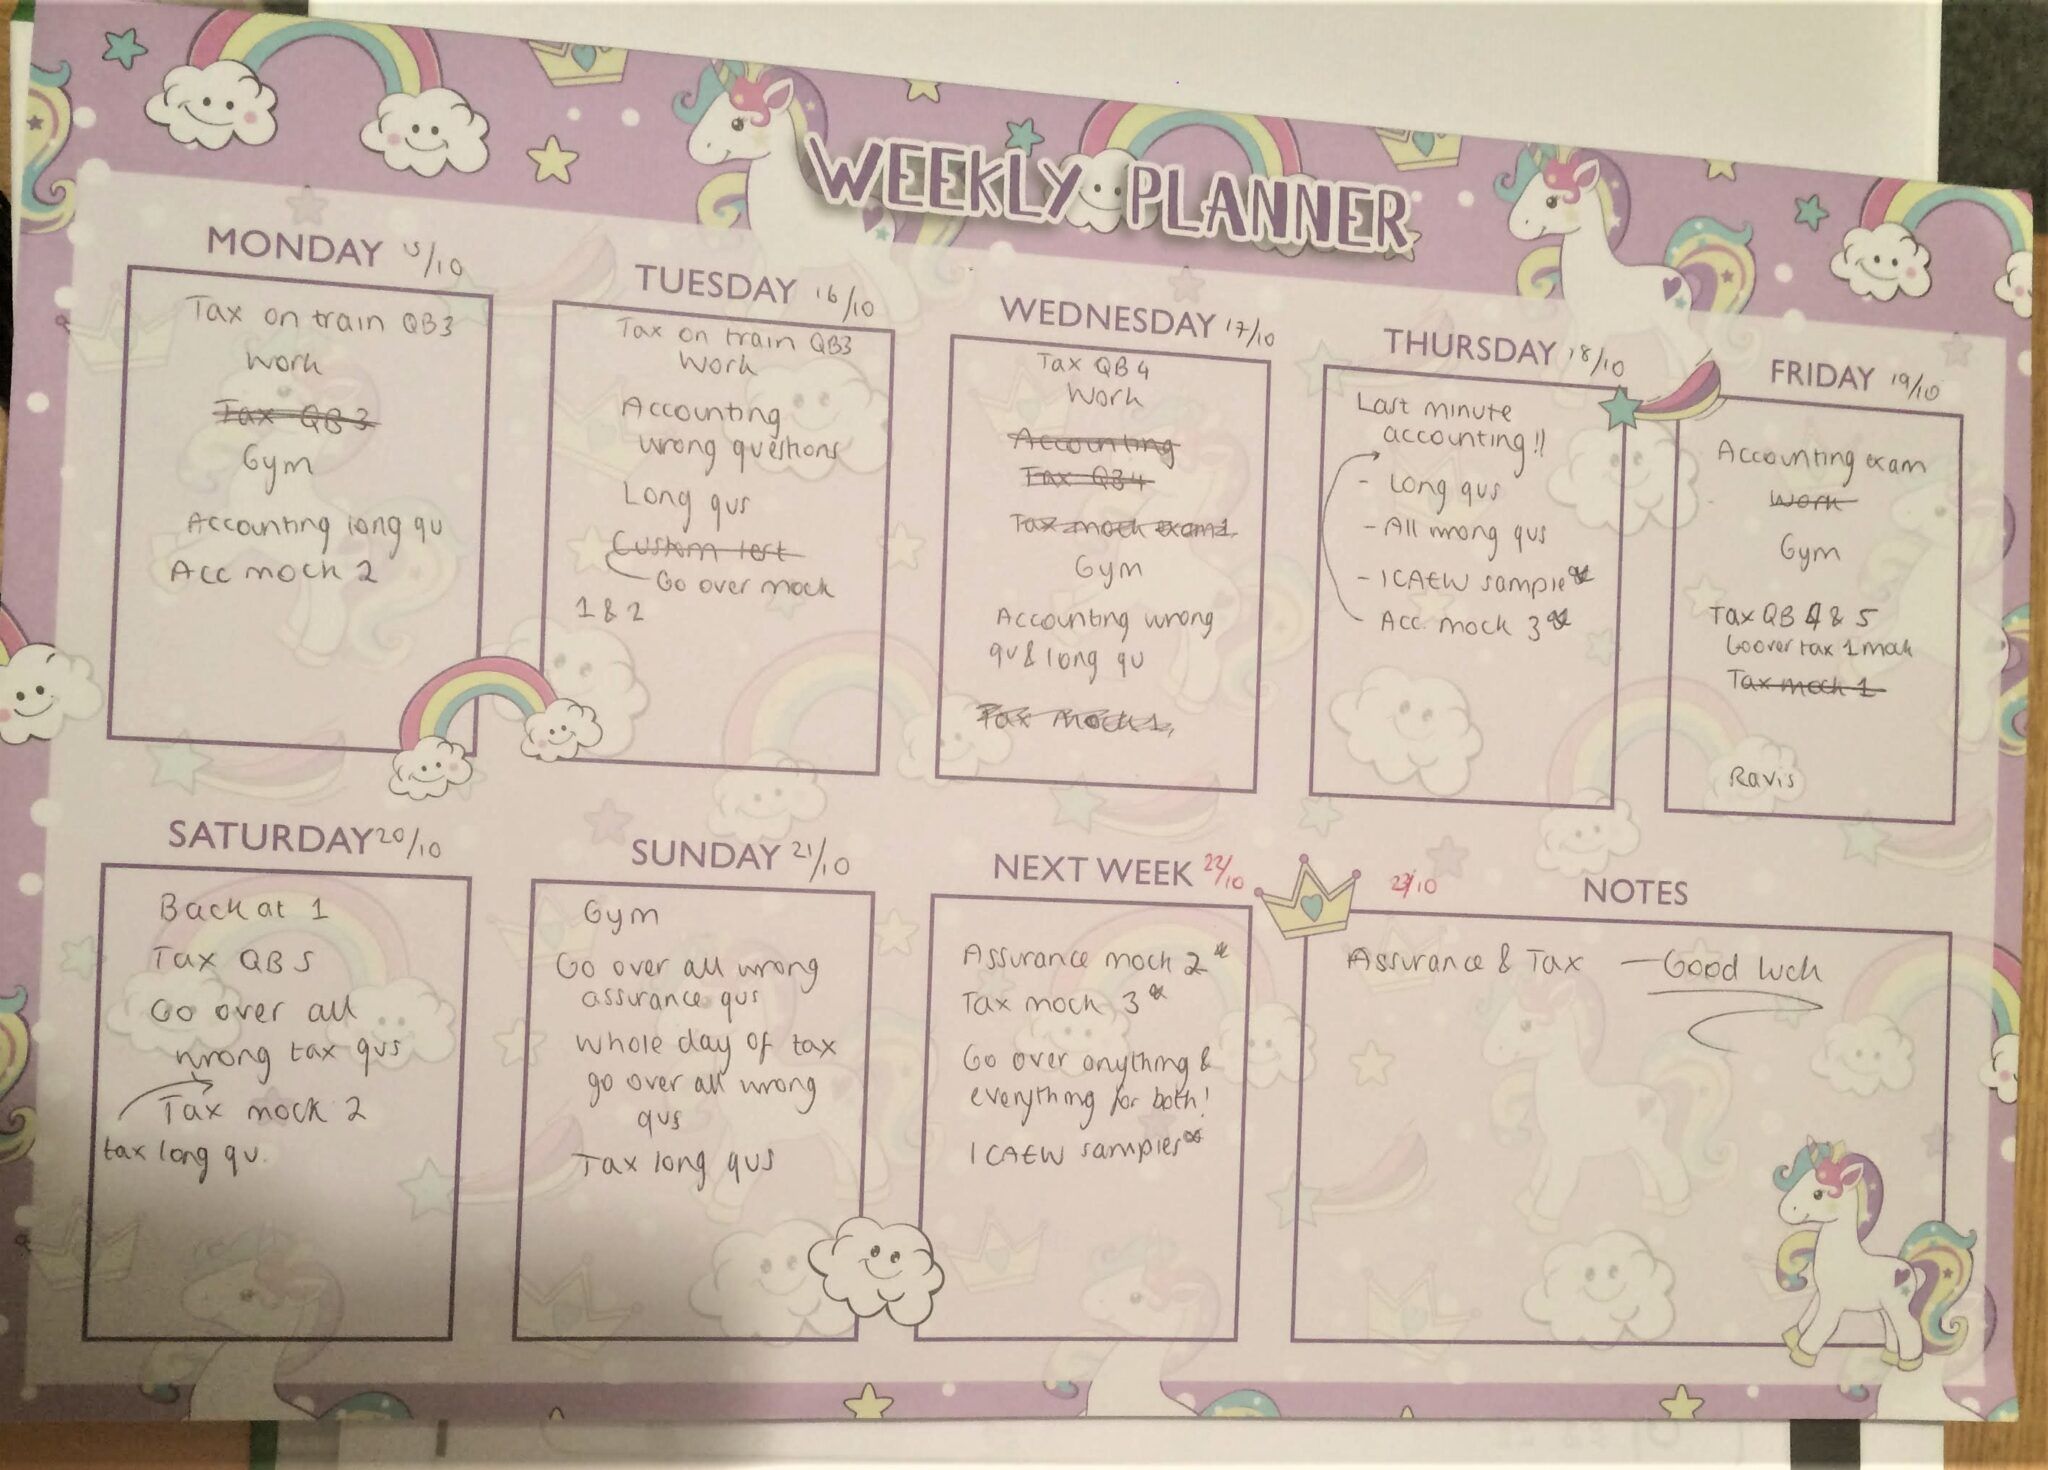 WEEKLY PLANNER
MONDAY 15/10
Tax on train QB3
Work
Tax QB3
Gym
Accounting long qu
Acc mock 2
TUESDAY 16/10
Tax on train QB3
Work
Accounting
wrong questions
Long qus
Custom test
Go over mock
1 & 2
WEDNESDAY 17/10
Tax QB4
Work
Accounting
Tax QB4
Tax mock exam 1
Gym
Accounting wrong
qu & long qu
Tax mock 1
THURSDAY 18/10
Last minute
accounting!!
- Long qus
- All wrong qus
- ICAEW sample*
Acc. mock 3*
FRIDAY 19/10
Accounting exam
Work
Gym
Tax QB 4 & 5
Go over tax 1 mock
Tax mock 1
Ravis
SATURDAY 20/10
Back at 1
Tax QB5
Go over all
wrong tax qus
Tax mock 2
tax long qu.
SUNDAY 21/10
Gym
Go over all wrong
assurance qus
whole day of tax
go over all wrong
qus
Tax long qus
NEXT WEEK 22/10
Assurance mock 2*
Tax mock 3*
Go over anything &
everything for both!
ICAEW samples*
23/10 NOTES
Assurance & Tax - Good luck